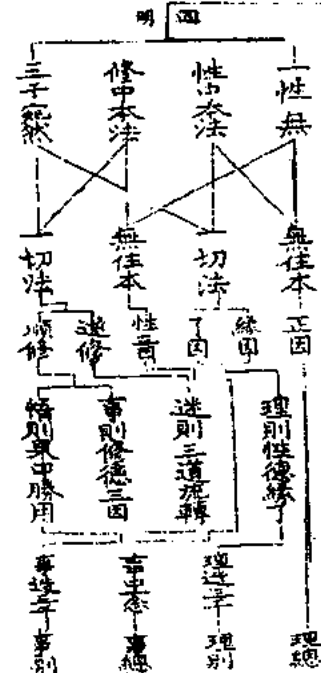 明 四
一性無
性中本法
修中本法
三千宛然
無住本
一切法
無住本
一切法
正因
緣因
了因
性首
逆修
順修
理則性德緣了
迷則三道流轉
事則修德三因
悟則果中勝用
理總
理造三千 理別
事中念 事總
事造三千 事別